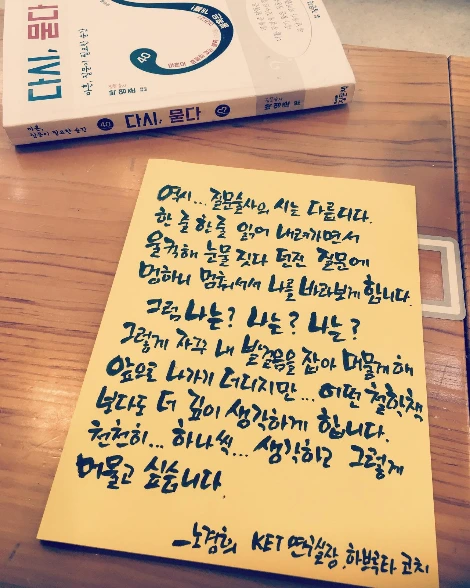 다시, 묻다
마흔,
질문이 필요한 순간
40
다시, 묻다
역시... 질문술사의 시는 다릅디다.
한 줄 한 줄 읽어 내려가면서
울컥해 눈물 짓다 던진 질문에
멍하니 멈춰서서 나를 바라보게 합니다.
그럼 나는? 나는? 나는?
그렇게 자꾸 내 발걸음을 잡아 머물게 해
앞으로 나가기 더디지만... 어떤 철학책
보다도 더 깊이 생각하게 합니다.
천천히... 하나씩... 생각하고 그렇게
머물고 싶습니다.
-노경희 KET 연구실장, 하브루타 코치